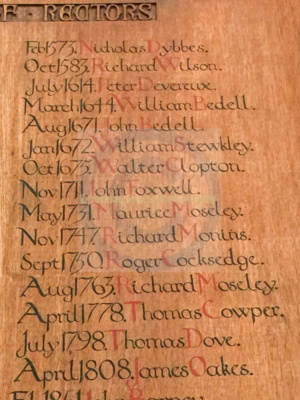 F RECTORS
Feb1573. Nicholas Dybbes.
Oct1583. Richard Wilson.
July1614. Peter Devereux.
March1644. William Bedell.
Aug1671. John Bedell.
Jan1672. William Stewkley.
Oct1675. Walter Clopton.
Nov1711. John Foxwell.
May1731. Maurice Moseley.
Nov1747. Richard Monins.
Sept1750. Roger Cocksedge.
Aug1763. Richard Moseley.
April1778. Thomas Cowper.
July1798. Thomas Dove.
April1808. James Oakes.